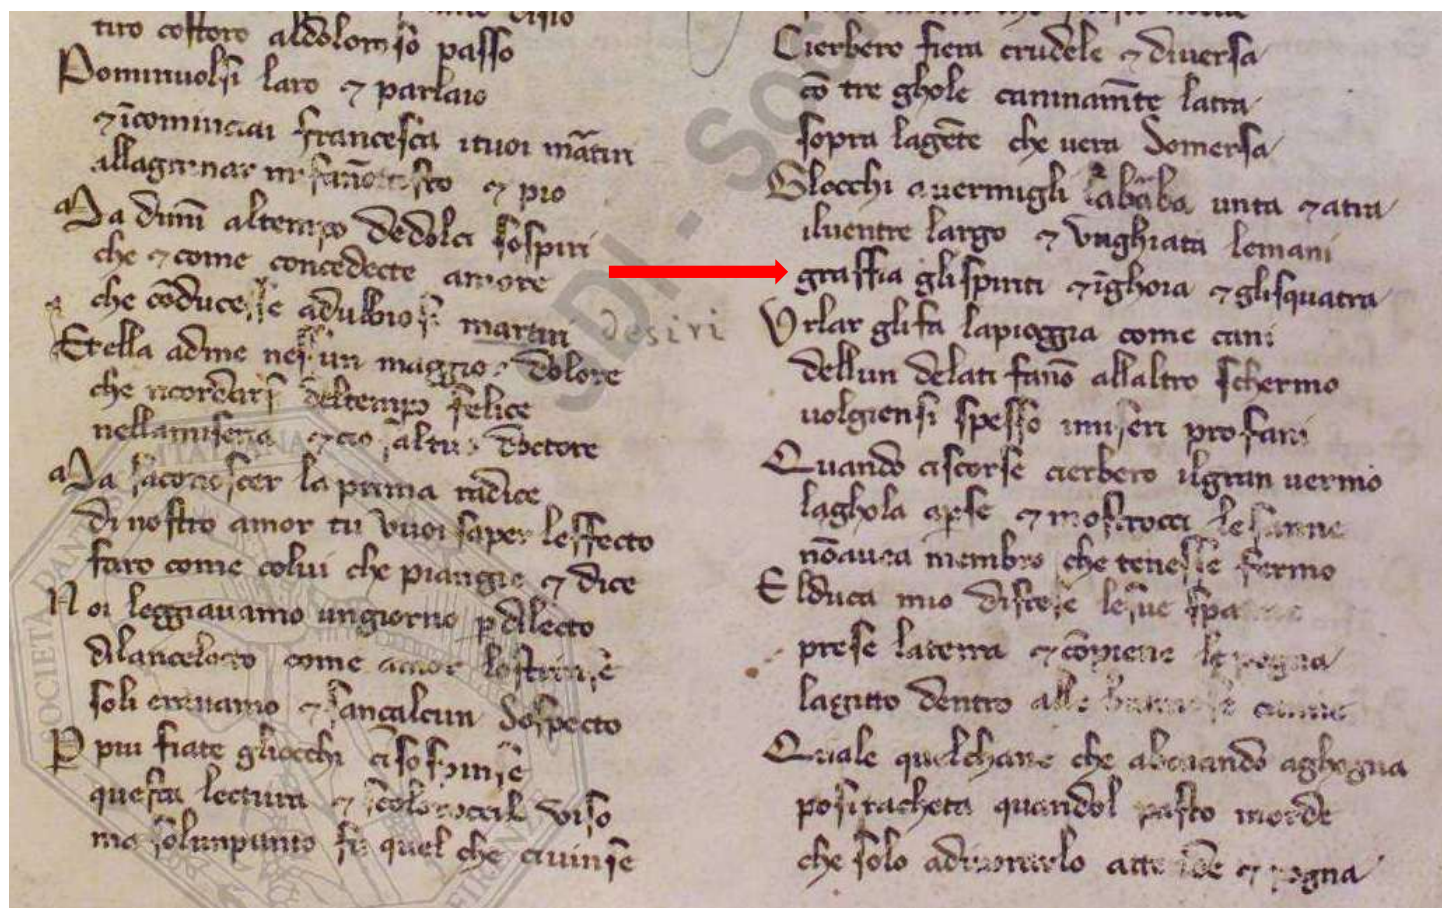 tiro costoro aldoloroso passo
Pominuolsi loro ⁊ parlaio
⁊ īcominciai francesca ituoi mātiri
allagrimar mi fāno tristo ⁊ pio
Ma dimī altempo dedolci sospiri
che ⁊ come concedecte amore
che cōducesse adubbiosi martiri desiri
Et ella adme nessun maggior dolore
che ricordarsi deltempo felice
nellamiseria ⁊ cio sal tuo doctore
Ma saconoscer la prima radice
di nostro amor tu vuoi saper leffecto
faro come colui che piangie ⁊ dice
Noi leggiauamo ungiorno p dilecto
dilancelotto come amor lostrinse
soli erauamo ⁊ sancalcun sospecto
P piu fiate gliocchi ci sospinse
questa lectura ⁊ scolorocci il viso
ma solunpunto fu quel che ciuinse
Cierbero fiera crudele ⁊ diuersa
cō tre ghole caninamēte latra
sopra lagēte che uera somersa
Glocchi a uermigli labarba unta ⁊ atra
iluentre largo ⁊ vnghiata lemani
graffia gli spiriti ⁊ īghoia ⁊ glisquatra
Vrlar glifa lapioggia come cani
dellun delati fāno allaltro schermo
uolgiensi spesso imiseri profani
Quando ciscorse cierbero ilgran uermo
laghola apse ⁊ mostrocci lesanne
nōauea membro che tenesse fermo
Elduca mio distese lesue spanne
prese laterra ⁊ cō piene lepugna
lagitto dentro alle bramose canne
Quale quelchane che abaiando aghogna
posi racheta quandol pasto morde
che solo adiuorarlo attende ⁊ pogna
SOCIETÀ DANTESCA ITALIANA
FIRENZE
SDI - Soc